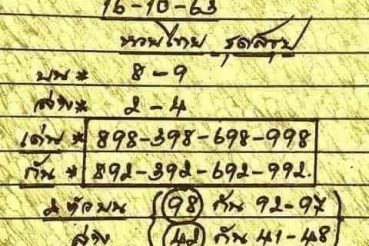 16-10-63
หวยไทย ชุดสรุป
บน * 8-9
ล่าง * 2-4
เด่น * 898-398-698-998
กัน * 892-392-692-992.
2 ตัวบน 98 กัน 92-97
ล่าง 42 กัน 41-48